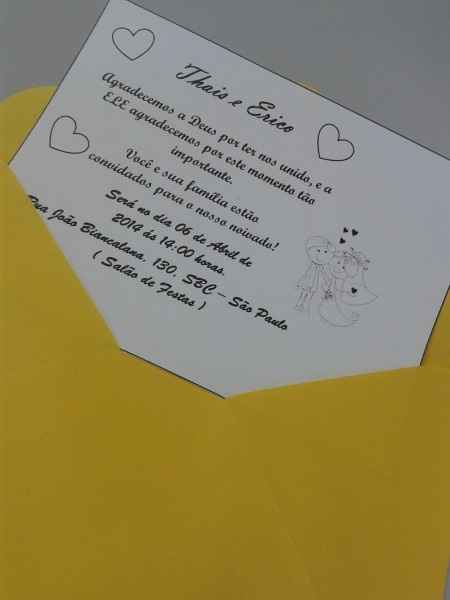 Thais e Erico
Agradecemos a Deus por ter nos unido, e a
ELE agradecemos por este momento tão
importante.
Você e sua família estão
convidados para o nosso noivado!
Será no dia 06 de Abril de
2014 ás 14:00 horas.
Rua João Biancalana, 130, SBC – São Paulo
( Salão de Festas )